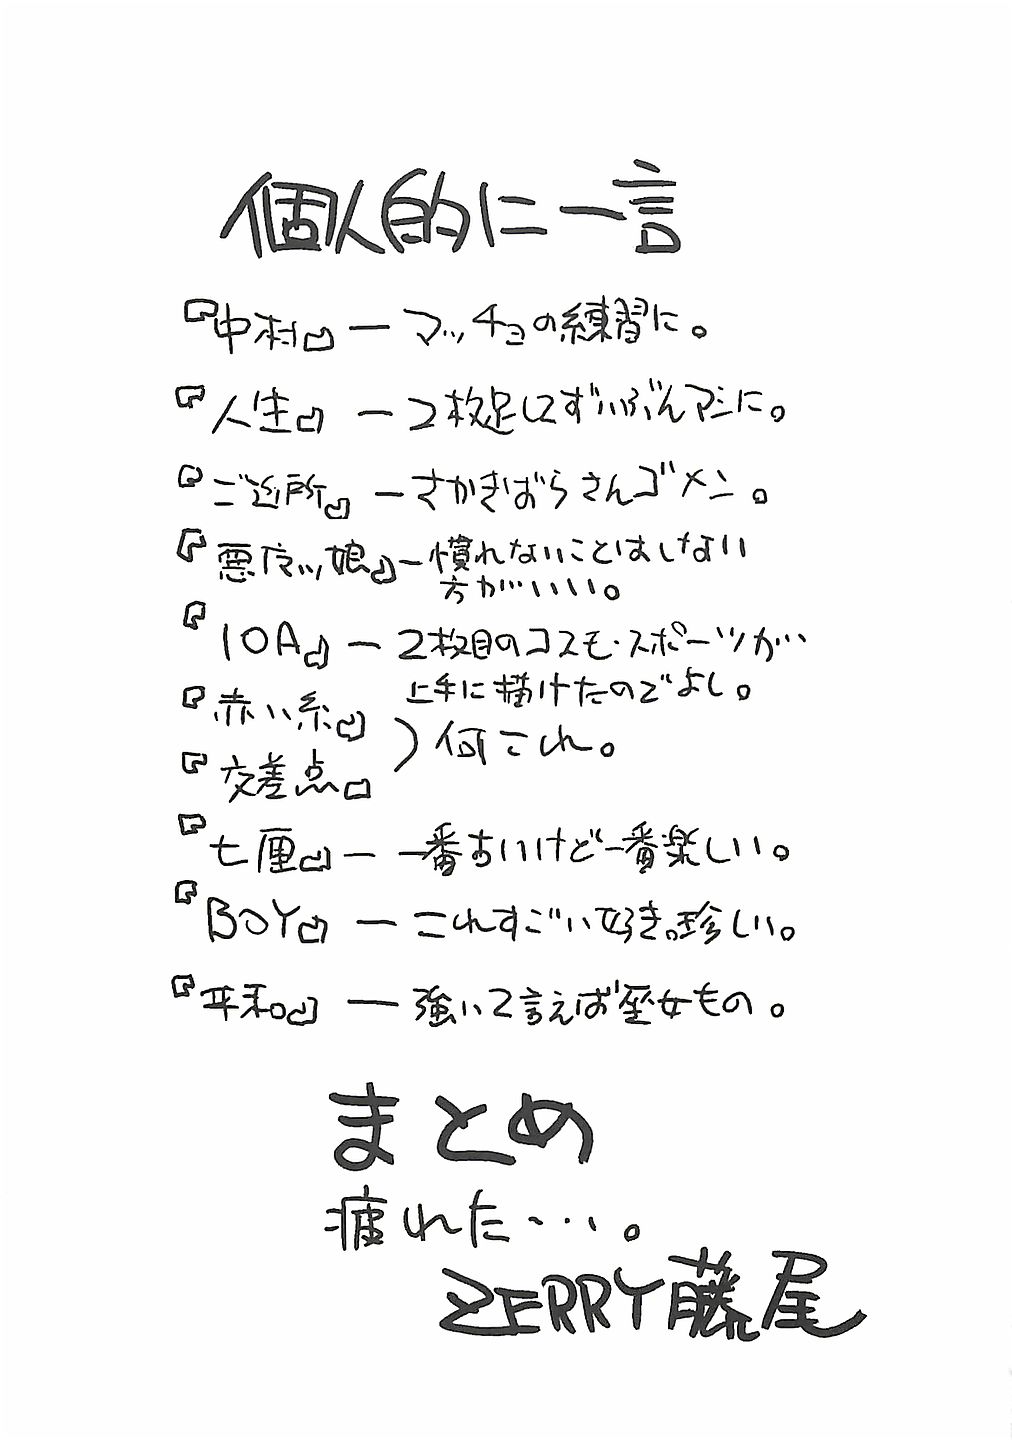 個人的に一言
『中村』ーマッチョの練習に。
『人生』ー2枚足してずいぶんマシに。
『ご近所』ーさかきばらさんゴメン。
『悪夜ッ娘』ー慣れないことはしない
方がいいい。
『10A』ー2枚目のコスモ・スポーツが…
上手に描けたのでよし。
『赤い糸』
『交差点』
)何これ。
『七厘』ー一番古いけど一番楽しい。
『BOY』ーこれすごい好き。珍しい。
『平和。』ー強いて言えば巫女もの。
まとめ
疲れた…。
ZERRY藤尾